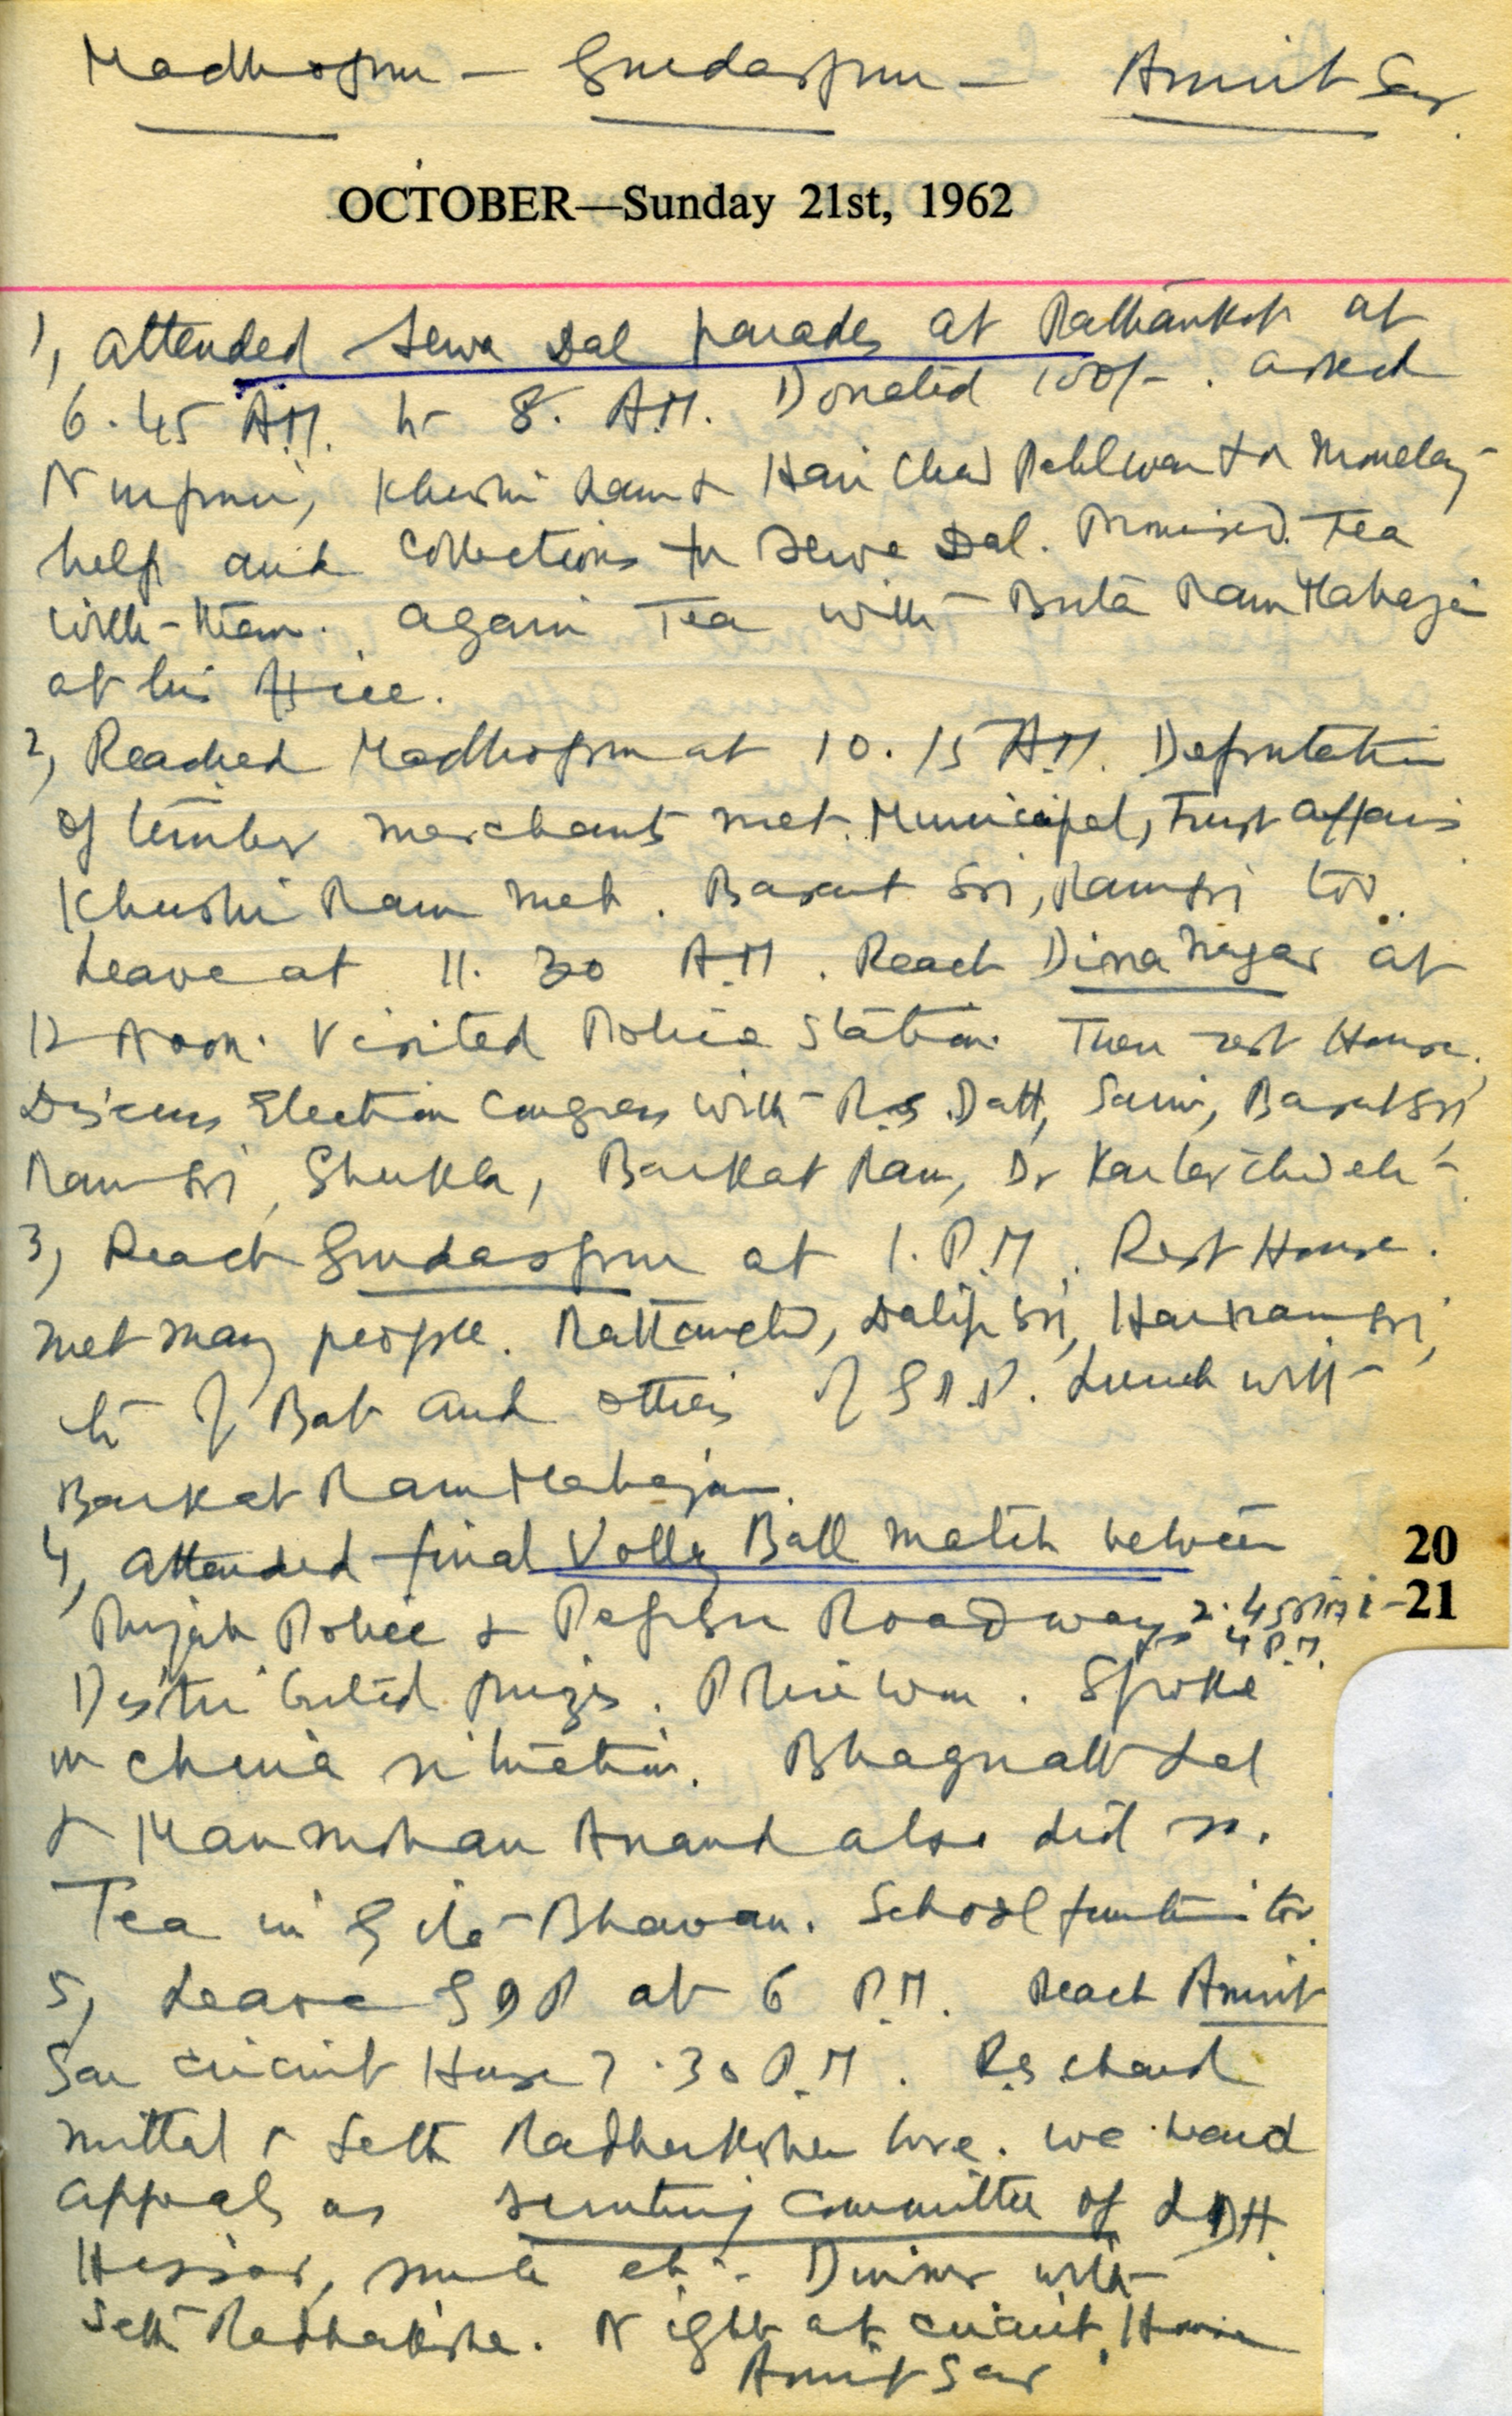 Madhopur - Gurdaspur - Amrit Sar.
OCTOBER—Sunday 21st, 1962
1, Attended Sewa Dal parade at Pathankot at
6.45 A.M. to 8. A.M. Donated 100/-. asked
Nurpuri, Khushi Ram & Hari Chad Pahlwan for Monday
help and collections for Sewa Dal. Promised. Tea
with them. again Tea with Buta Ram Mahajan
at his office.
2, Reached Madhopur at 10.15 A.M. Deputation
of timber merchants met. Municipal, Trust affairs
Khushi Ram met. Basant Sri, Ram Sri too.
Leave at 11.30 A.M. Reach Dina Nagar at
12 Noon. Visited Police Station. Then rest House.
Discuss Election Congress with R.S. Datt, Saini, Basant Sri,
Ram Sri, Shukla, Barkat Ram, Dr Kartar Chd etc
3, Reach Gurdaspur at 1. P.M. Rest House.
met many people. Rattanchd, Dalip Sri, Harnam Sri,
of Bat and others of GDP. Lunch with
Barkat Ram Mahajan.
4, Attended final Volly Ball match between
20
Punjab Police & Pepsu Roadways 2.45 PM -
21
4 P.M.
Distributed prizes. Police won. Spoke
on china situation. Bhagnatt Lal
& Man Mohan Anand also did so.
Tea in Gita Bhavan. School function too.
5, Leave GDP at 6 P.M. Reach Amrit
Sar circuit House 7.30 P.M. R.S. Chand
Mittal & Seth Radhakishen here. We heard
appeals as scrutiny committee of LDH.
Hissar, etc. Dinner with
Seth Radhakishen. Night at circuit House
Amrit Sar.